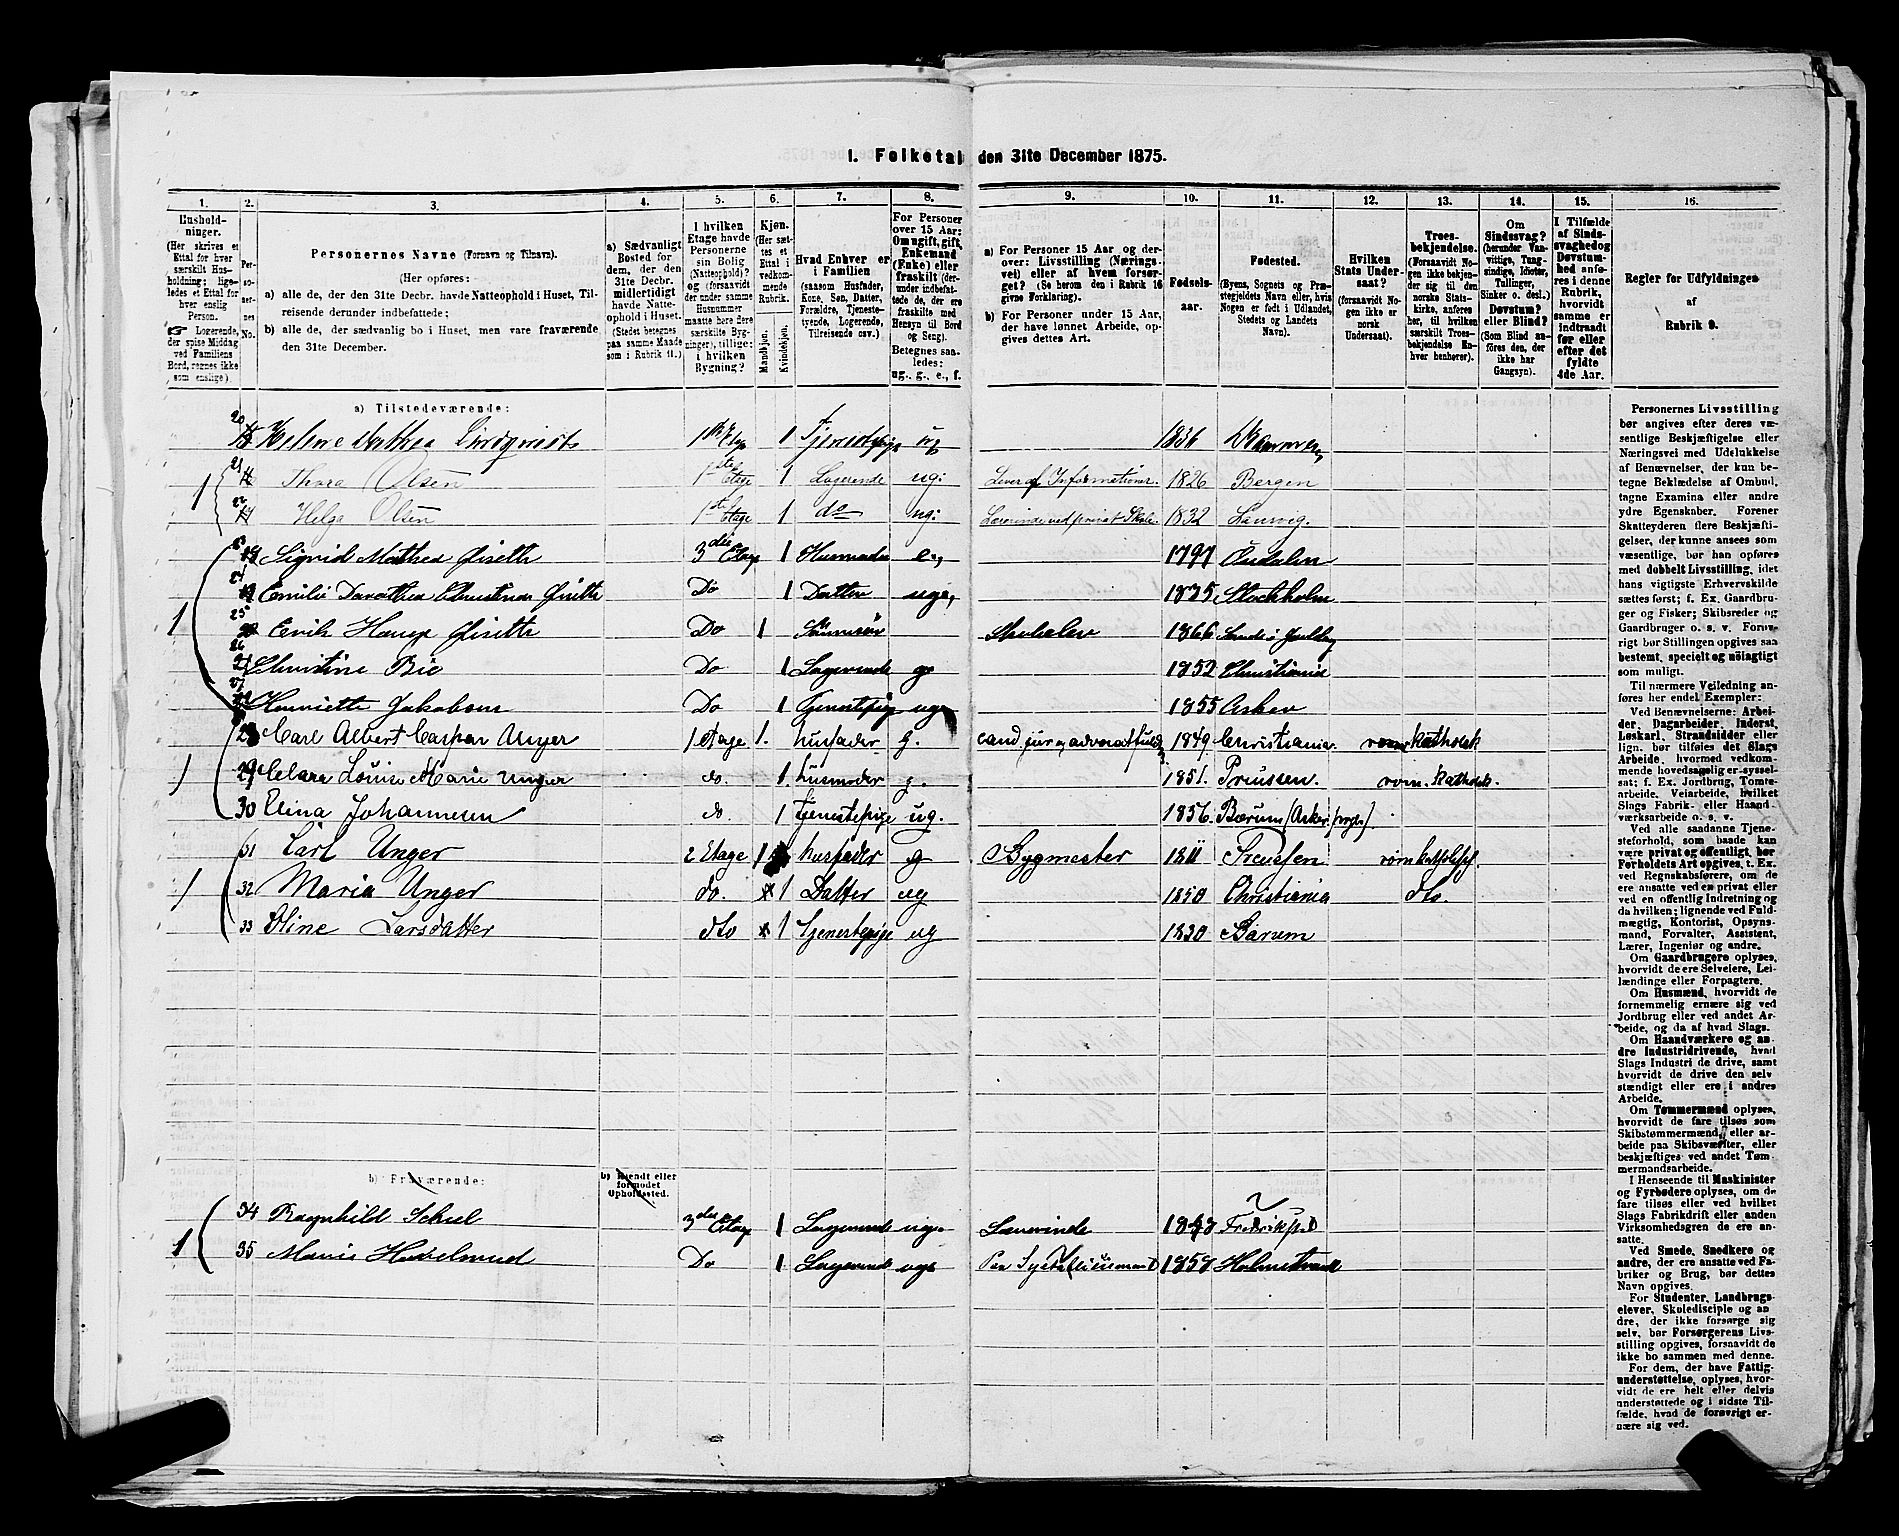 1. Folketal den 31te December 1875.
1. 2. 3. 4. 5. 6. 7. 8. 9. 10. 11. 12. 13. 14. 15. 16.
Husholdninger.
(Her skrives et
Ettal for hver
særskilt Husholdning;
ligeledes et Ettal for
enslig
Person.
☞ Logerende,
der spise Middag
ved Familiens
Bord, regnes ikke
som enslige).
Personernes No.
Personernes Navne (Fornavn og Tilnavn).
(Her opføres:
a) alle de, der den 31te Decbr. havde Natteophold i Huset, Tilreisende derunder indbefattede;
b) alle de, der sædvanlig bo i Huset, men vare fraværende
den 31te December.
a) Sædvanligt
Bosted for
dem, der den
31te Decbr.
midlertidigt
havde Natteophold i Huset.
(Stedet betegnes
paa samme Maade
som i Rubrik 11.)
I hvilken
Etage havde
Personerne
sin Bolig
(Natteophold)?
og (forsaavidt
der under samme
Husnummer
maatte høre flere
særskilte Bygninger), tillige:
i hvilken
Bygning?
Kjøn.
(Her sættes et
Ettal i
vedkommende
Rubrik.
Mandkjøn. Kvindekjøn.
Hvad Enhver er
i Familien
(saasom Husfader,
Kone, Søn, Datter,
Forældre, Tjenestetyende, Logerende,
Tilreisende osv.)
For Personer
over 15 Aar:
Om ugift, gift,
Enkemand
(Enke) eller
fraskilt (derunder indbefattede de, der ere
fraskilte med
Hensyn til Bord
og Seng).
Betegnes saaledes:
ug., g., e., f.
a) For Personer 15 Aar og derover: Livsstilling (Næringsvei) eller af hvem forsørget? (Se herom den i Rubrik 16
givne Forklaring).
b) For Personer under 15 Aar,
der have lønnet Arbeide, opgives dettes Art.
Fødselsaar.
Fødested.
(Byens, Sognets og Præstegjeldets Navn eller, hvis
Nogen er født i Udlandet,
Stedets og Landets
Navn).
Hvilken
Stats Undersaat?
(forsaavidt Nogen ikke er
norsk
Undersaat).
Troesbekjendelse.
(Forsaavidt Nogen ikke bekjender sig til den
norske Statskirke, anføres
her, til hvilken
særskilt Troesbekjendelse Enhver henhører).
Om
Sindssvag?
(herunder Vanvittige, Tungsindige, Idioter,
Tullinger,
Sinker o. desl.)
Døvstum?
eller Blind?
(Som Blind anføres den, der
ikke har
Gangsyn).
I Tilfælde
af Sindssvaghed og
Døvstumhed anføres i denne
Rubrik,
hvorvidt
samme er
indtraadt
før eller
efter det
fyldte
4de Aar.
Regler for Udfyldningen
af
Rubrik 9.
a) Tilstedeværende:
20 Helene Mathea Lindqvist 1ste Etage 1 Tjenestepige ug 1836 Drammen
1 21 Thora Olsen 1ste Etage 1 Logerende ug: Lever af Informationer. 1826 Bergen
22 Helga Olsen 1ste Etage 1 do ug: Lærerinde ved privat Skole. 1832 Laurvig.
1 Sigrid Mathea Giseth 3die Etage 1 Husmoder e, 1797
24 Emilie Dorothea Giseth Do 1 Datter uge, 1835 Stockholm
25 Erik Giseth Do 1 Sønnesøn Skoleelev 1866
26 Christine Bie Do 1 Logerende g 1852 Christiania
27 Henriette Jakobsen Do 1 Tjenestepige ug 1855 Asker
28 Carl Albert Caspar Unger 1 Etage 1. husfader g. cand. jur. 1849 Christiania. rom. katholsk
1 29 Clara Louise Marie Unger do. 1. husmoder g. 1851. Preussen. rom. katholsk.
30 Elina Johannesen do. 1 tjenestepige ug. 1856. Bærum (Asker
31 Carl Unger 2 Etage 1 husfader g Bygmester 1811 Preussen rom katholsk
1 32 Maria Unger do. 1 Datter ug 1850 Christiania dto.
33 Oline Larsdatter dto 1 Tjenestepige ug 1830 Bærum
b) Fraværende: b) Kjendt eller
formodet
Opholdssted.
34 Ragnhild 3die Etage 1 Logerende ug Lærerinde Fredrikstad
1 35 Marie Do 1 Logerende ug Holmestrand
Personernes Livsstilling
bør angives efter deres væsentlige Beskjæftigelse eller
Næringsvei med Udelukkelse
af Benævnelser, der kun betegne Beklædelse af Ombud,
tagne Examina eller andre
ydre Egenskaber. Forener
Skatteyderen flere Beskjæftigelser, der kunne ansees som
væsentlige, bør han opføres
med dobbelt Livsstilling, idet
hans vigtigste Erhvervskilde
sættes først; f. Ex. Gaardbruger og Fisker; Skibsreder og
Gaardbruger o. s. v. Forøvrigt bør Stillingen opgives saa
bestemt, specielt og nøiagtigt
som muligt.
Til nærmere Veiledning anføres her endel Exempler:
Ved Benævnelserne: Arbeider, Dagarbeider, Inderst,
Løskarl, Strandsidder eller
lign. bør tilføies det Slags
Arbeide, hvormed vedkommende hovedsagelig er sysselsat; f. Ex. Jordbrug, Tomtearbeide, Veiarbeide, hvilket
Slags Fabrik- eller Haandværksarbeide o. s. v.
Ved alle saadanne Tjenesteforhold, som baade kan
være privat og offentligt, bør
Forholdets Art opgives, t. Ex.
ved Regnskabsførere, om de
ere ansatte ved en privat eller
ved en offentlig Indretning og
da hvilken; lignende ved Fuldmægtig, Kontorist, Opsynsmand, Forvalter, Assistent,
Lærer, Ingeniør og andre.
Om Gaardbrugere oplyses,
hvorvidt de ere Selveiere, Leilændinge eller Forpagtere.
Om Husmænd, hvorvidt de
fornemmelig ernære sig ved
Jordbrug eller ved andet Arbeide, og da af hvad Slags.
Om Haandværkere og andre Industridrivende, hvad
Slags Industri de drive, samt
hvorvidt de drive den selvstændigt eller ere i andres
Arbeide.
Om Tømmermænd oplyses,
hvorvidt de fare tilsøs som
Skibstømmermænd, eller arbeide paa Skibsværfter, eller
beskjæftiges ved andet Tømmermandsarbeide.
I Henseende til Maskinister
og Fyrbødere oplyses, om de
fare tilsøs eller ved hvilket
Slags Fabrikdrift eller anden
Virksomhedsgren de ere ansatte.
Ved Smede, Snedkere og
andre, der ere ansatte ved Fabriker og Brug, bør dettes
Navn opgives.
For Studenter, Landbrugselever, Skoledisciple og andre, der ikke forsørge sig
selv, bør Forsørgerens Livsstilling opgives, forsaavidt de
ikke bo sammen med denne.
For dem, der have Fattigunderstøttelse, oplyses, hvorvidt de ere helt eller delvis
understøttede og i sidste Tilfælde, hvad de forøvrigt ernære sig ved.